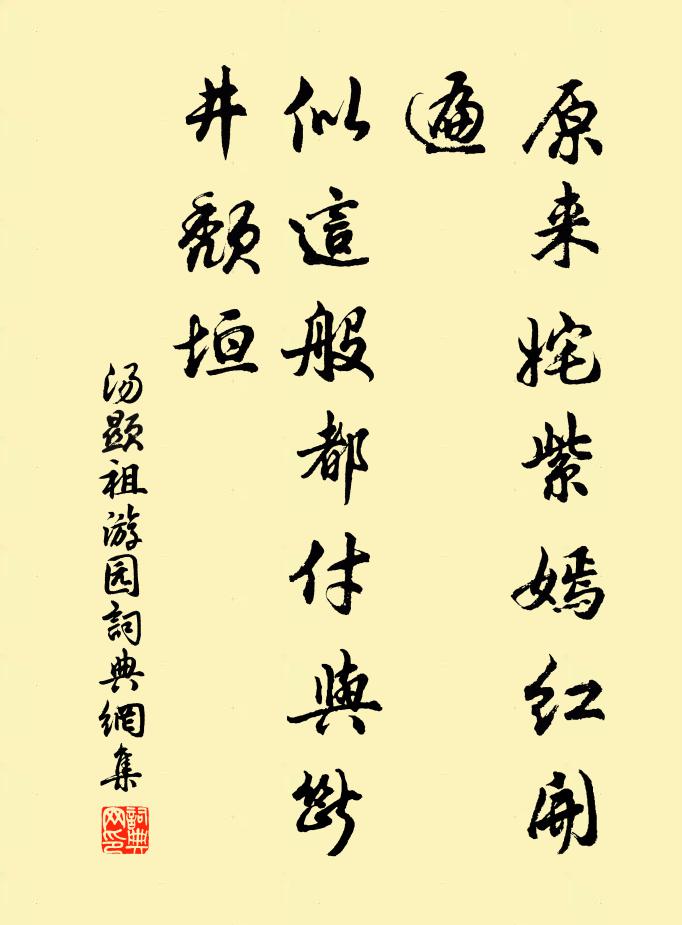 原来姹紫嫣红开
遍
似這般都付與斷
井頹垣
汤顯祖游园詞典網集
詞典
网印